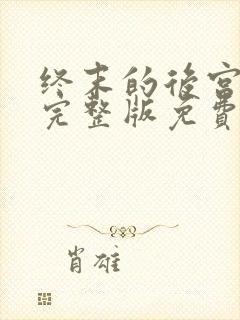 终末的後宫
完整版免費
肖雄